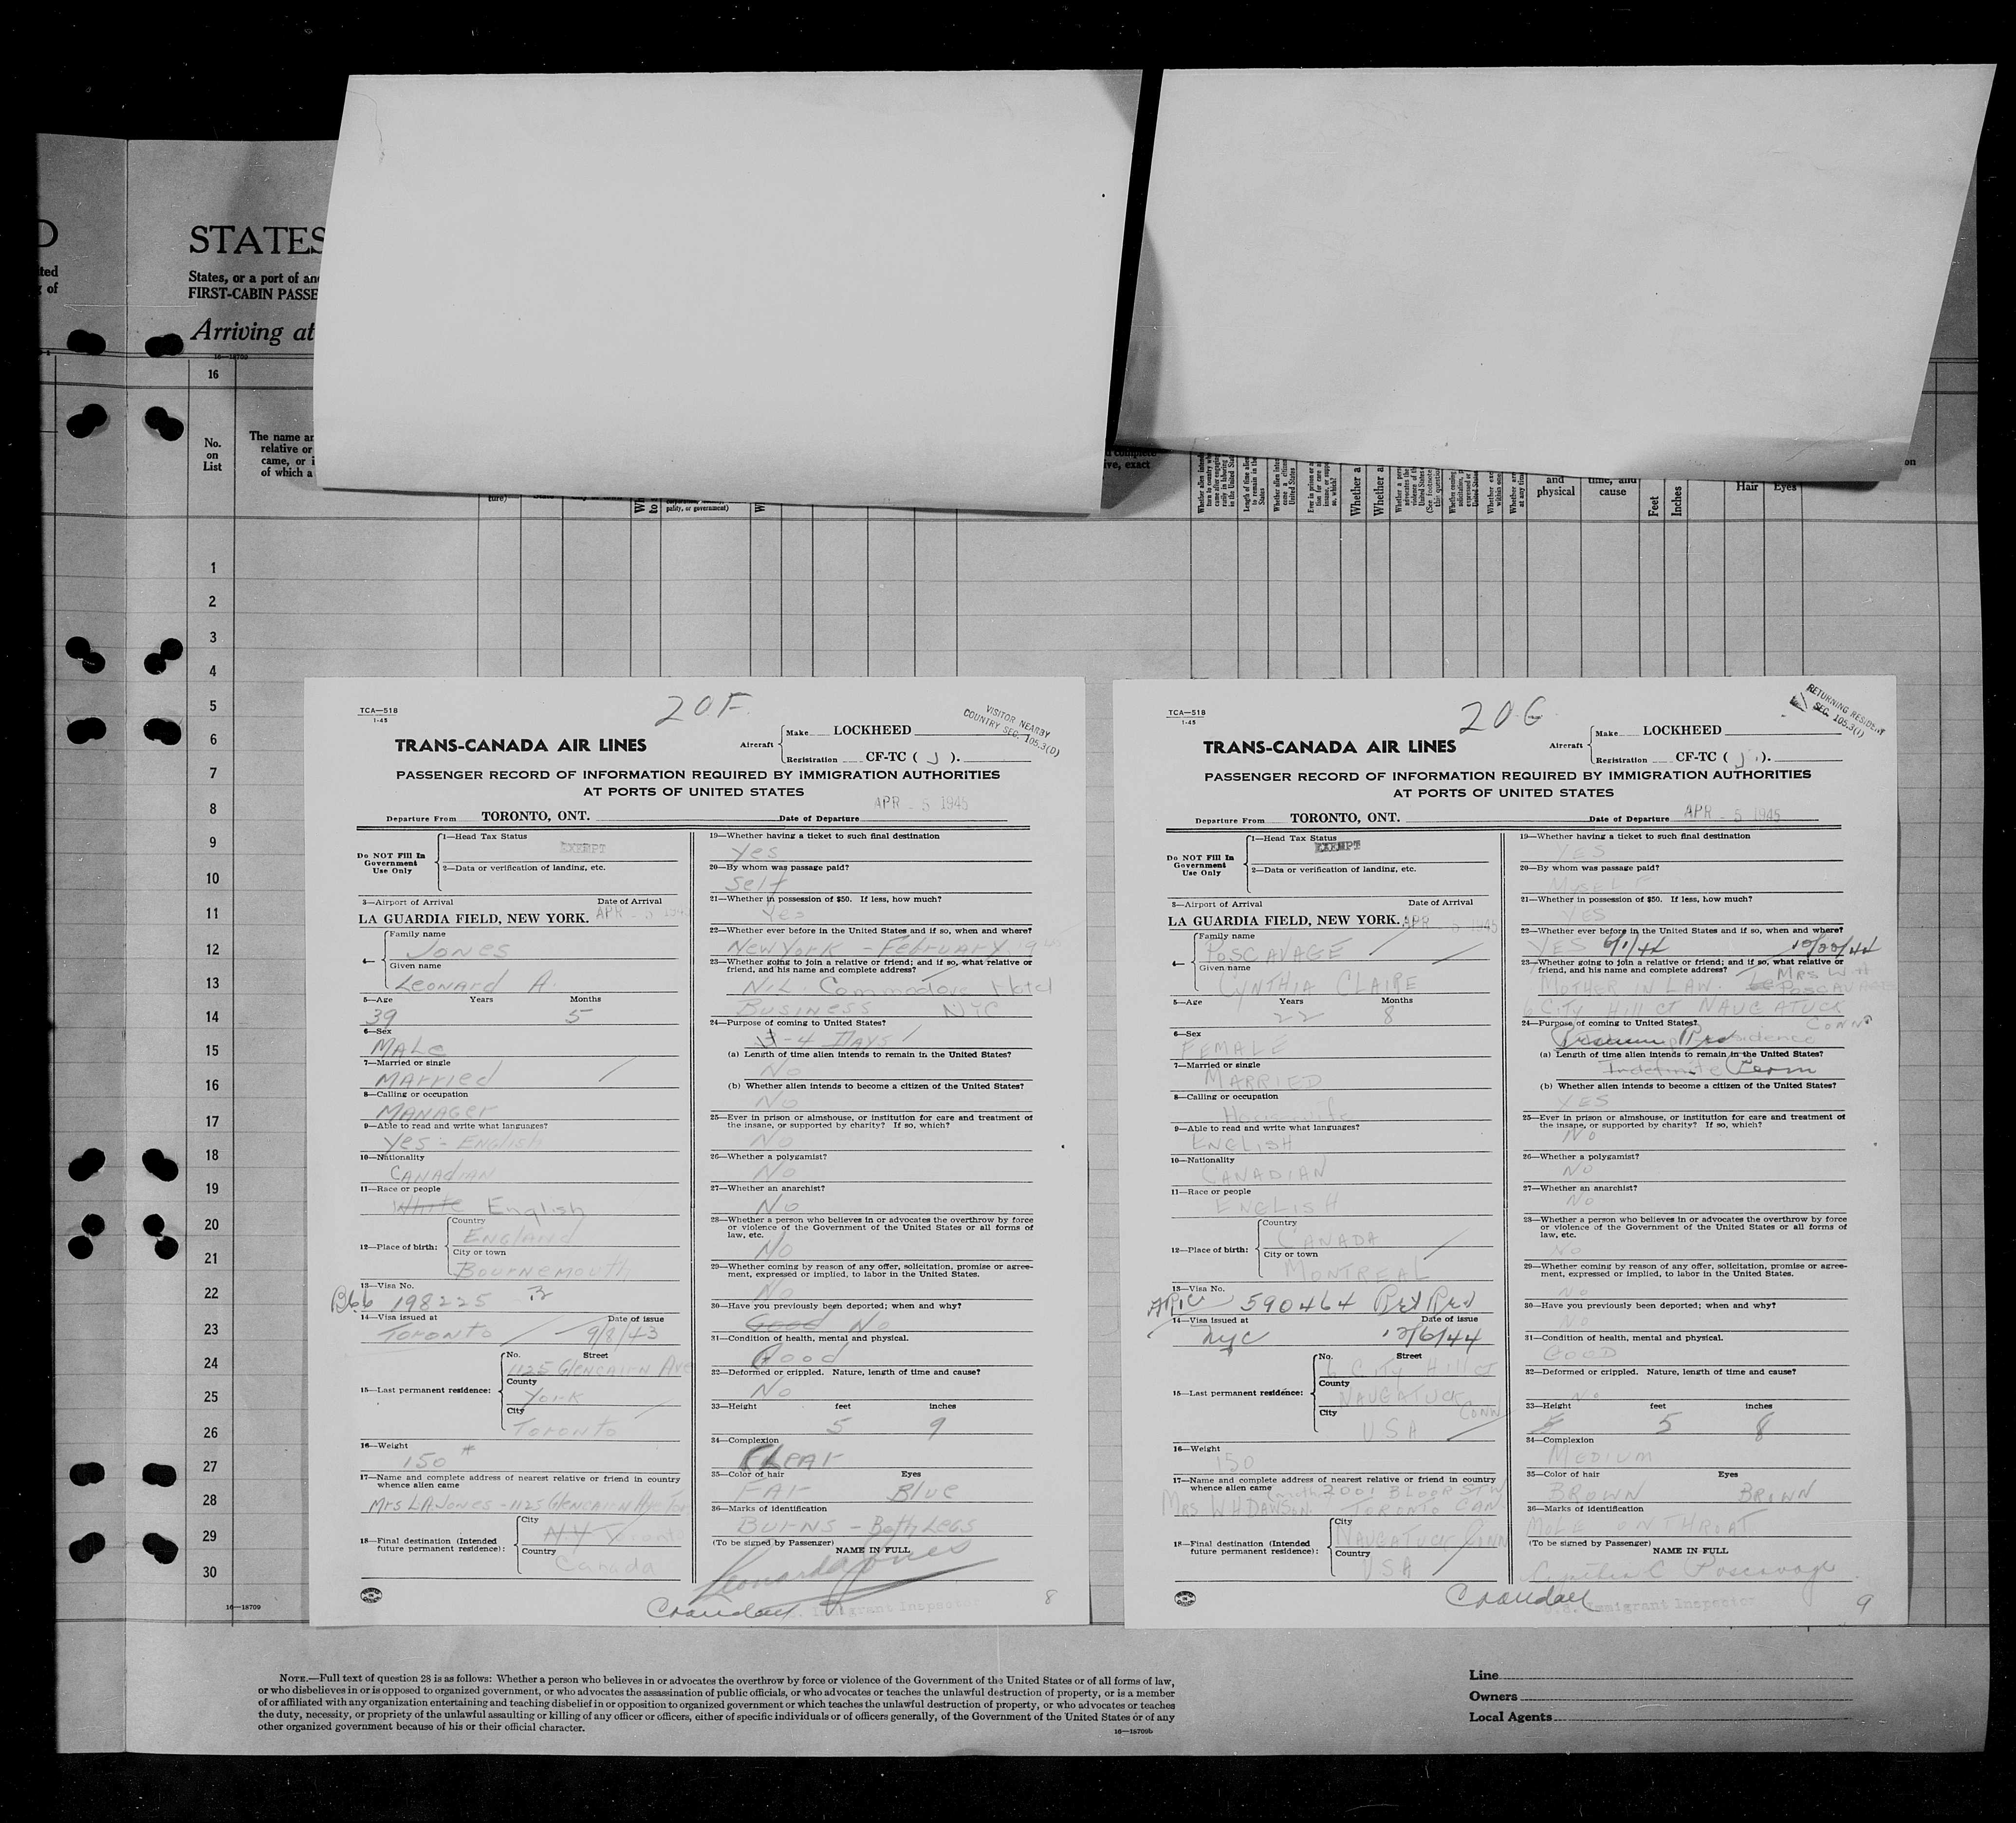 D
ted
g of
STATES
States, or a port of an
FIRST-CABIN PASSE
Arriving at
16—18709
16
No.
on
List
The name an
relative or
came, or i
of which a
ture)
pality, or government)
complete
ve, exact
and
physical
time, and
cause
Feet
Inches
Hair
Eyes
on
1
2
3
4
5
6
7
8
9
10
11
12
13
14
15
16
17
18
19
20
21
22
23
24
25
26
27
28
29
30
16—18709
TCA—518
1-45
20F
VISITOR NEARBY
COUNTRY SEC. 105.3(D)
TRANS-CANADA AIR LINES
Aircraft
Make LOCKHEED
Registration CF-TC ( J ).
PASSENGER RECORD OF INFORMATION REQUIRED BY IMMIGRATION AUTHORITIES
AT PORTS OF UNITED STATES
APR - 5 1945
Departure From TORONTO, ONT. Date of Departure
Do NOT Fill In
Government
Use Only
1—Head Tax Status
EXEMPT
2—Data or verification of landing, etc.
3—Airport of Arrival Date of Arrival
LA GUARDIA FIELD, NEW YORK. APR - 5 1945
Family name
JONES
4—
Given name
Leonard A.
5—Age Years Months
39 5
6—Sex
MALE
7—Married or single
MARRIED
8—Calling or occupation
MANAGER
9—Able to read and write what languages?
Yes - ENGLISH
10—Nationality
CANADIAN
11—Race or people
White English
12—Place of birth:
Country
ENGLAND
City or town
BOURNEMOUTH
13—Visa No.
B66 198225
14—Visa issued at Date of issue
TORONTO 9/8/43
15—Last permanent residence:
No. Street
1125 GLENCAIRN Ave
County
York
City
TORONTO
16—Weight
150 #
17—Name and complete address of nearest relative or friend in country
whence alien came
Mrs L.A. Jones - 1125 GLENCAIRN Ave Tor
18—Final destination (Intended
future permanent residence):
City
NY Toronto
Country
Canada
19—Whether having a ticket to such final destination
Yes
20—By whom was passage paid?
Self
21—Whether in possession of $50. If less, how much?
Yes
22—Whether ever before in the United States and if so, when and where?
New York - February 1945
23—Whether going to join a relative or friend; and if so, what relative or
friend, and his name and complete address?
NIL. Commodore Hotel
BUSINESS NYC
24—Purpose of coming to United States?
3-4 DAYS
(a) Length of time alien intends to remain in the United States?
No
(b) Whether alien intends to become a citizen of the United States?
No
25—Ever in prison or almshouse, or institution for care and treatment of
the insane, or supported by charity? If so, which?
No
26—Whether a polygamist?
No
27—Whether an anarchist?
No
28—Whether a person who believes in or advocates the overthrow by force
or violence of the Government of the United States or all forms of
law, etc.
No
29—Whether coming by reason of any offer, solicitation, promise or agree-
ment, expressed or implied, to labor in the United States.
No
30—Have you previously been deported; when and why?
Good No
31—Condition of health, mental and physical.
Good
32—Deformed or crippled. Nature, length of time and cause?
No
33—Height feet inches
5 9
34—Complexion
CLEAR
35—Color of hair Eyes
FAIR Blue
36—Marks of identification
BURNS - Both Legs
(To be signed by Passenger)
NAME IN FULL
Leonard A Jones
Crandall
U.S. Immigrant Inspector
8
TCA—518
1-45
20G
RETURNING RESIDENT
SEC. 105.3(1)
TRANS-CANADA AIR LINES
Aircraft
Make LOCKHEED
Registration CF-TC ( J ).
PASSENGER RECORD OF INFORMATION REQUIRED BY IMMIGRATION AUTHORITIES
AT PORTS OF UNITED STATES
APR - 5 1945
Departure From TORONTO, ONT. Date of Departure
Do NOT Fill In
Government
Use Only
1—Head Tax Status
EXEMPT
2—Data or verification of landing, etc.
3—Airport of Arrival Date of Arrival
LA GUARDIA FIELD, NEW YORK. APR - 5 1945
Family name
POSCAVAGE
4—
Given name
CYNTHIA CLAIRE
5—Age Years Months
22 8
6—Sex
FEMALE
7—Married or single
MARRIED
8—Calling or occupation
Housewife
9—Able to read and write what languages?
ENGLISH
10—Nationality
CANADIAN
11—Race or people
ENGLISH
12—Place of birth:
Country
CANADA
City or town
MONTREAL
13—Visa No.
590464
14—Visa issued at Date of issue
NYC 12/6/44
15—Last permanent residence:
No. Street
6 CITY Hill ct
County
NAUGATUCK
CONN
City
USA
16—Weight
150
17—Name and complete address of nearest relative or friend in country
whence alien came (mother) 2001 BLOOR ST W
MRS W H DAWSON TORONTO CAN
18—Final destination (Intended
future permanent residence):
City
NAUGATUCK CONN
Country
USA
19—Whether having a ticket to such final destination
YES
20—By whom was passage paid?
MYSELF
21—Whether in possession of $50. If less, how much?
YES
22—Whether ever before in the United States and if so, when and where?
YES
23—Whether going to join a relative or friend; and if so, what relative or
friend, and his name and complete address?
MRS W H
MOTHER IN LAW. POSCAVAGE
6 CITY Hill CT NAUGATUCK
CONN
24—Purpose of coming to United States?
Residence
(a) Length of time alien intends to remain in the United States?
Indefinite Perm
(b) Whether alien intends to become a citizen of the United States?
YES
25—Ever in prison or almshouse, or institution for care and treatment of
the insane, or supported by charity? If so, which?
No
26—Whether a polygamist?
No
27—Whether an anarchist?
No
28—Whether a person who believes in or advocates the overthrow by force
or violence of the Government of the United States or all forms of
law, etc.
No
29—Whether coming by reason of any offer, solicitation, promise or agree-
ment, expressed or implied, to labor in the United States.
No
30—Have you previously been deported; when and why?
No
31—Condition of health, mental and physical.
GOOD
32—Deformed or crippled. Nature, length of time and cause?
No
33—Height feet inches
5 8
34—Complexion
MEDIUM
35—Color of hair Eyes
BROWN BROWN
36—Marks of identification
MOLE ON THROAT
(To be signed by Passenger)
NAME IN FULL
Cynthia C Poscavage
Crandall
U.S. Immigrant Inspector
9
NOTE.—Full text of question 28 is as follows: Whether a person who believes in or advocates the overthrow by force or violence of the Government of the United States or of all forms of law,
or who disbelieves in or is opposed to organized government, or who advocates the assassination of public officials, or who advocates or teaches the unlawful destruction of property, or is a member
of or affiliated with any organization entertaining and teaching disbelief in or opposition to organized government or which teaches the unlawful destruction of property, or who advocates or teaches
the duty, necessity, or propriety of the unlawful assaulting or killing of any officer or officers, either of specific individuals or of officers generally, of the Government of the United States or of any
other organized government because of his or their official character.
16—18709b
Line
Owners
Local Agents